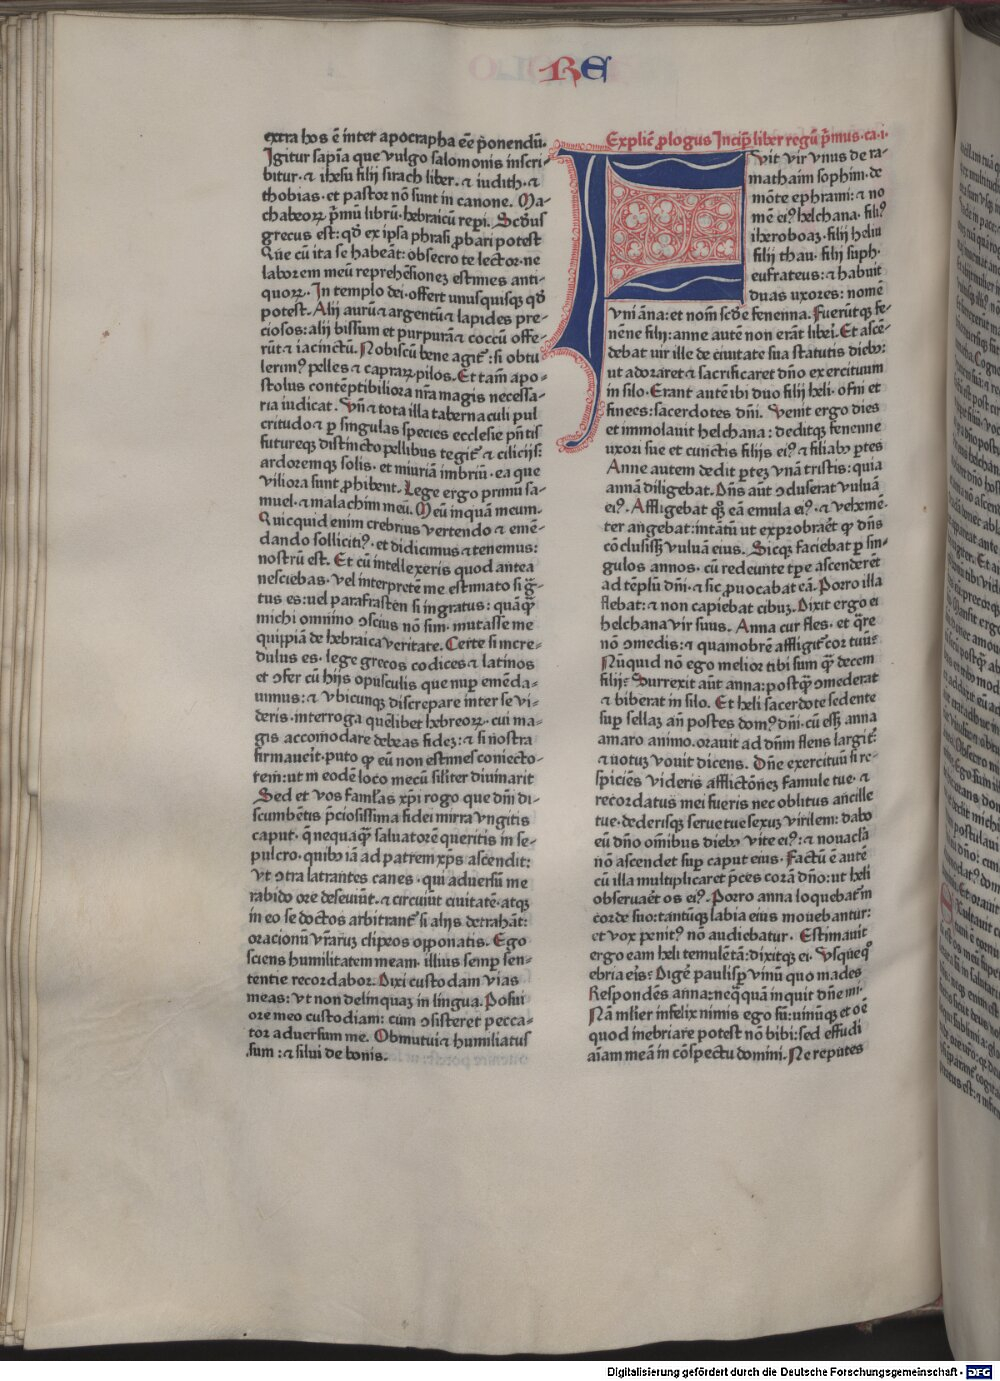 RE
extra hos ē inter apocrapha eē ponendū.
Igitur sapīa que vulgo salomonis inscri-
bitur · ⁊ ihesu filij sirach liber · ⁊ iudith · ⁊
thobias · et pastor nō sunt in canone. Ma-
chabeoꝝ prīmū librū · hebraicū reperi. Scd̄us
grecus est: qd̄ ex ipsa phrasi ꝓbari potest
Que cū ita se habeāt: obsecro te lector · ne
laborem meū reprehēsionez estimes anti-
quoꝝ. In templo dei · offert unusquisqꝫ qd̄
potest. Alij aurū ⁊ argentū ⁊ lapides pre-
ciosos: alij bissum et purpurā ⁊ coccū offe-
rūt ⁊ iacinctū. Nobiscū bene agit᷑ : si obtu
lerimꝰ pelles ⁊ capraꝝ pilos. Et tam̄ apo-
stolus contēptibiliora nr̄a magis necessa-
ria iudicat. Vn̄ ⁊ tota illa tabernaculi pul
critudo ⁊ ꝑ singulas species ecclesie pn̄tis
futureqꝫ distincto pellibus tegit᷑ ⁊ cilicijs:
ardoremqꝫ solis · et iniuriā imbriū · ea que
viliora sunt ꝓhibent. Lege ergo primū sa-
muel · ⁊ malachim meū. Meū inquā meum.
Quicquid enim crebrius vertendo ⁊ emē-
dando sollicitiꝰ · et didicimus ⁊ tenemus:
nostrū est. Et cū intellexeris quod antea
nesciebas · vel interpretē me estimato si g̃-
tus es: uel parafrasten si ingratus: quāqꝫ
michi omnino ꝯscius nō sim · mutasse me
quippiā de hebraica veritate. Certe si incre-
dulus es · lege grecos codices ⁊ latinos
et ꝯfer cū hijs opusculis que nuꝑ emēda-
uimus: ⁊ vbicunqꝫ discrepare inter se vi-
deris · interroga quēlibet hebreoꝝ · cui ma-
gis accomodare debeas fidez: ⁊ si nostra
firmauerit · puto ꝙ eū non estimes coniecto-
rem: ut in eodē loco mecū siliter diuinarit
Sed et vos famlas xp̄i rogo que dn̄i di-
scumbētis p̄ciosissima fidei mirra vngitis
caput · q̄ nequaqꝫ saluatorē queritis in se-
pulcro · quibꝰ iā ad patrem xp̄s ascendit:
vt ꝯtra latrantes canes · qui aduersū me
rabido ore deseuiūt · ⁊ circuiūt ciuitatē · atqꝫ
in eo se doctos arbitrant᷑ si alijs detrahāt:
orationū vr̄arum clipeos opponatis. Ego
sciens humilitatem meam · illius semꝑ sen-
tentie recordabor. Dixi custodam vias
meas: vt non delinquaz in lingua. Posui
ore meo custodiam: cum ꝯsisteret pecca-
tor aduersum me. Obmutui ⁊ humiliatus
sum: ⁊ silui de bonis.
Explic̄ ꝓlogus Incip̄ liber regū p̄mus · ca · i ·
Fvit vir vnus de ra-
mathaim sophim · de
mōte ephraim: ⁊ no
mē eiꝰ helchana · filiꝰ
iheroboaz · filij heliu
filij thau · filij suph ·
eufrateus: ⁊ habuit
duas uxores: nomē
vni āna: et nom̄ scd̄e fenenna. Fuerūtqꝫ fe-
nēne filij: anne autē non erāt liberi. Et ascē-
debat uir ille de ciuitate sua statutis diebꝰ:
ut adoraret ⁊ sacrificaret dn̄o exercituum
in silo. Erant autē ibi duo filij heli · ofni et
finees: sacerdotes dn̄i. Venit ergo dies
et immolauit helchana: deditqꝫ fenenne
uxori sue et cunctis filijs eiꝰ ⁊ filiabꝰ ꝑtes
Anne autem dedit ꝑtez vnā tristis: quia
annā diligebat. Dn̄s aūt ꝯcluserat vuluā
eiꝰ. Affligebat qꝫ eā emula eiꝰ · ⁊ vehemē-
ter angebat: intātū ut exprobraēt ꝙ dn̄s
cōclusissꝫ vuluā eius. Sicqꝫ faciebat ꝑ sin-
gulos annos · cū redeunte tꝑe ascenderēt
ad tēplū dn̄i · ⁊ sic ꝓuocabat eā. Porro illa
flebat: ⁊ non capiebat cibuz. Dixit ergo ei
helchana vir suus. Anna cur fles · et q̄re
nō ꝯmedis: ⁊ quamobrē affligit᷑ cor tuū:
Nūquid nō ego melior tibi sum qꝫ decem
filij: Surrexit aūt anna: postqꝫ ꝯmederat
⁊ biberat in silo. Et heli sacerdote sedente
suꝑ sellaz an̄ postes domꝰ dn̄i · cū essꝫ anna
amaro animo · orauit ad dn̄m flens largit᷑:
⁊ uotuz vouit dicens. Dn̄e exercituū si re-
spiciēs videris afflictōez famule tue · ⁊
recordatus mei fueris nec oblitus ancille
tue · dederisqꝫ serue tue sexuz virilem: dabo
eū dn̄o omībus diebꝰ vite eiꝰ: ⁊ nouacl̄a
nō ascendet suꝑ caput eius. Factū ē autē
cū illa multiplicaret p̄ces corā dn̄o: ut heli
obseruaēt os eiꝰ. Porro anna loquebat᷑ in
corde suo: tantūqꝫ labia eius mouebantur:
et vox penitꝰ nō audiebatur. Estimauit
ergo eam heli temulētā: dixitqꝫ ei. Vsqueqꝰ
ebria eris: Digē paulisꝑ vinū quo mades
Respondēs anna: neqꝫquā inquit dn̄e mi.
Nā mlier infelix nimis ego sū: uinūqꝫ et oē
quod inebriare potest nō bibi: sed effudi
aīam meā in cōspectu domini. Ne reputes
Digitalisierung gefördert durch die Deutsche Forschungsgemeinschaft - DFG